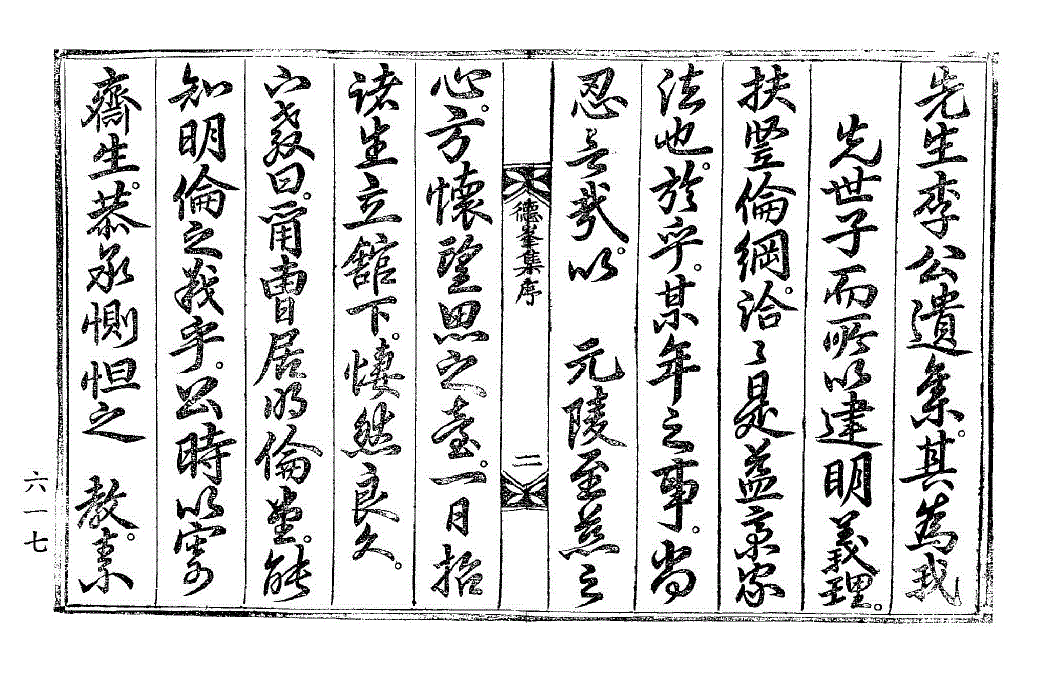 先生李公遺集。其爲我
先世子而所以建明義理。
扶竪倫綱。洽〻是益京家
法也。於乎。某年之事。尚
忍言哉。以 元陵至慈之
德峯集序
二
心。方懷望思之臺。一日招
諸生立館下。悽然良久。
下敎曰。爾曹居明倫堂。能
知明倫之義乎。公時以寄
齋生。恭承惻怛之 敎。素
六一七